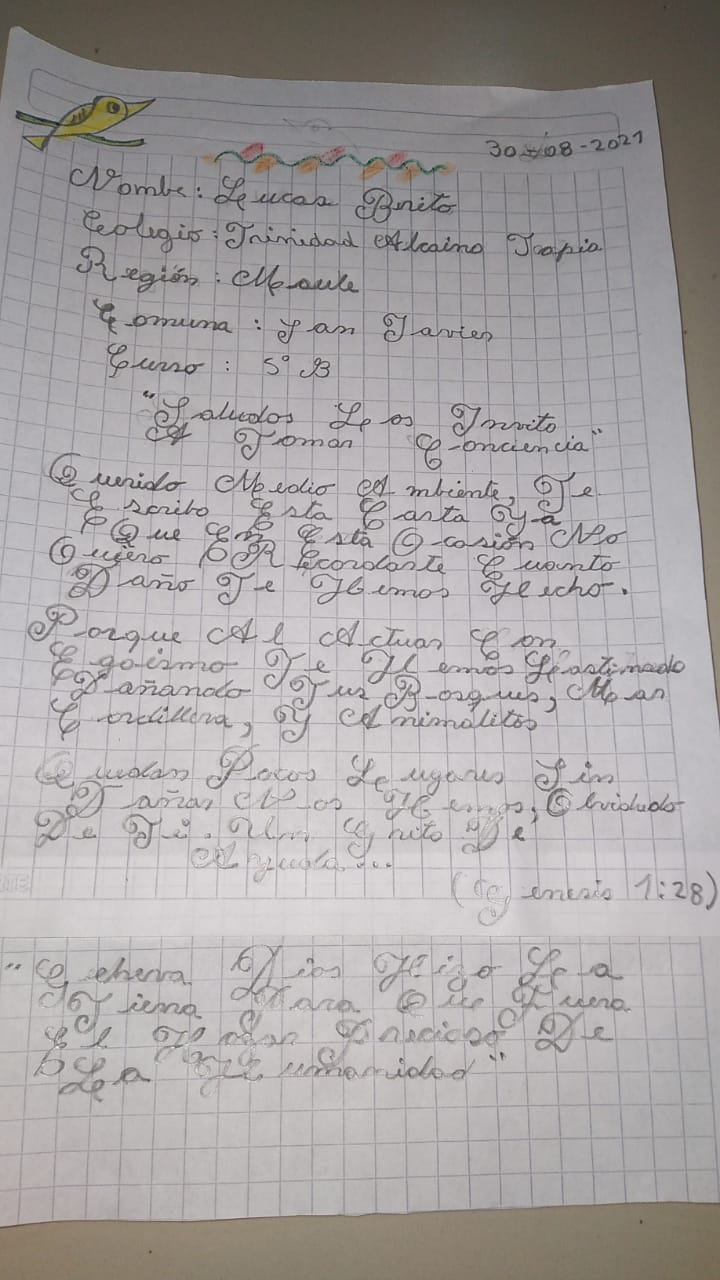 30-08-2021
Nombe: Lucas Brito
Colegio: Trinidad Alcaino Tapia
Región: Maule
Comuna: San Javier
Curso: 5° B
"Saludos Los Invito
A Tomar Conciencia"
Querido Medio Ambiente, Te
Escribo Esta Carta Ya
Que En Esta Ocasión No
Quiero Recordarte Cuanto
Daño Te Hemos Hecho.
Porque Al Actuar Con
Egoismo Te Hemos Lastimado
Dañando Tus Borques, Mar
Cordillera, Y Animalitos
Quedan Pocos Lugares Sin
Dañar Nos Hemos, Olvidado
De Ti. Un Grito De
Ayuda...
(Genesis 1:28)
"Gehova Dios Hizo La
Tierra Para Que Fuera
El Hogar Precioso De
La Humanidad"